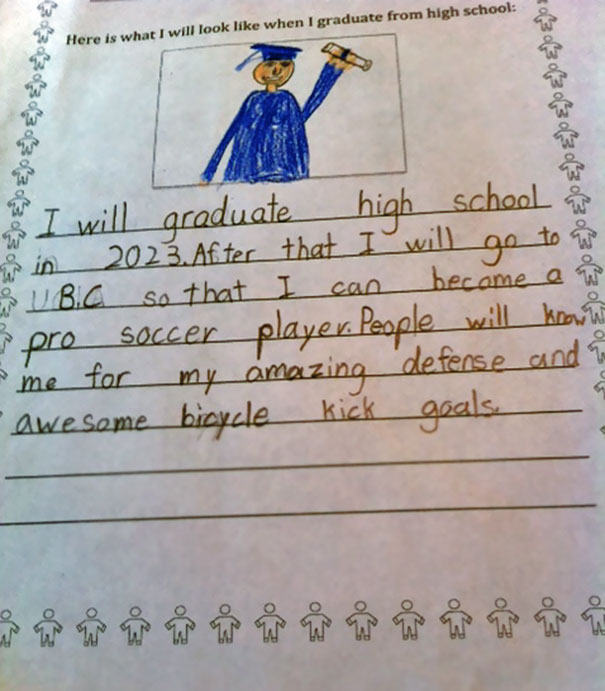 Here is what I will look like when I graduate from high school:
I will graduate high school
in 2023. After that I will go to
U.B.C so that I can become a
pro soccer player. People will know
me for my amazing defense and
awesome bicycle kick goals.